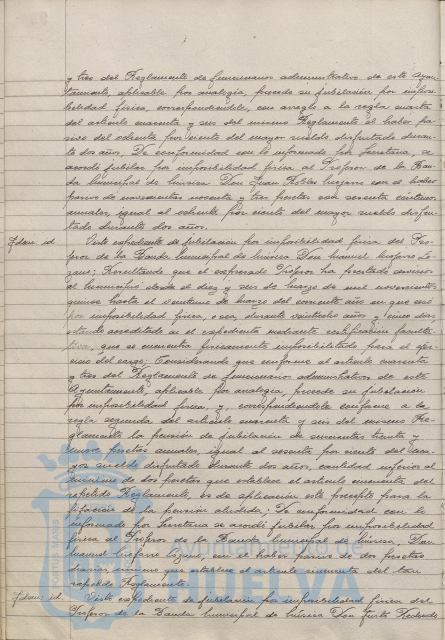 y tres del Reglamento de funcionarios administrativos de este Ayun-
tamiento, aplicable por analogía, procede su jubilación por imposi-
bilidad física, correspondiéndole, con arreglo a la regla cuarta
del artículo cuarenta y seis del mismo Reglamento el haber pa-
sivo del ochenta por ciento del mayor sueldo disfrutado duran-
te dos años. De conformidad con lo informado por Secretaría, se
acordó jubilar por imposibilidad física al Profesor de la Ban-
da Municipal de Música Don Juan Robles con el haber
pasivo de novecientas noventa y tres pesetas con sesenta céntimos
anuales, igual al ochenta por ciento del mayor sueldo disfru-
tado durante dos años.
Idem id. Visto expediente de jubilación por imposibilidad física del Pro-
fesor de la Banda Municipal de Música Don Manuel
Resultando que el expresado Profesor ha prestado servicios
al Municipio desde el diez y seis de Marzo de mil novecientos
quince hasta el veintiuno de Marzo del corriente año en que cesó
por imposibilidad física, o sea, durante veintiocho años y cinco días
estando acreditado en el expediente mediante certificación faculta-
tiva, que se encuentra físicamente imposibilitado para el ejer-
cicio del cargo; Considerando que conforme al artículo cuarenta
y tres del Reglamento de funcionarios administrativos de este
Ayuntamiento, aplicable por analogía, procede su jubilación
por imposibilidad física, y, correspondiéndole conforme a la
regla segunda del artículo cuarenta y seis del mismo Re-
glamento la pensión de jubilación de seiscientas treinta y
nueve pesetas anuales, igual al sesenta por ciento del ma-
yor sueldo disfrutado durante dos años, cantidad inferior al
mínimo de dos pesetas que establece el artículo cincuenta del
repetido Reglamento, es de aplicación este precepto para la
fijación de la pensión aludida; De conformidad con lo
informado por Secretaría se acordó jubilar por imposibilidad
física al Profesor de la Banda Municipal de Música, Don
Manuel con el haber pasivo de dos pesetas
diarias, mínimo que establece el artículo cincuenta del tan
repetido Reglamento.
Idem id. Visto expediente de jubilación por imposibilidad física del
Profesor de la Banda Municipal de Música Don Justo Redondo
PORTUS MARIS
HUELVA